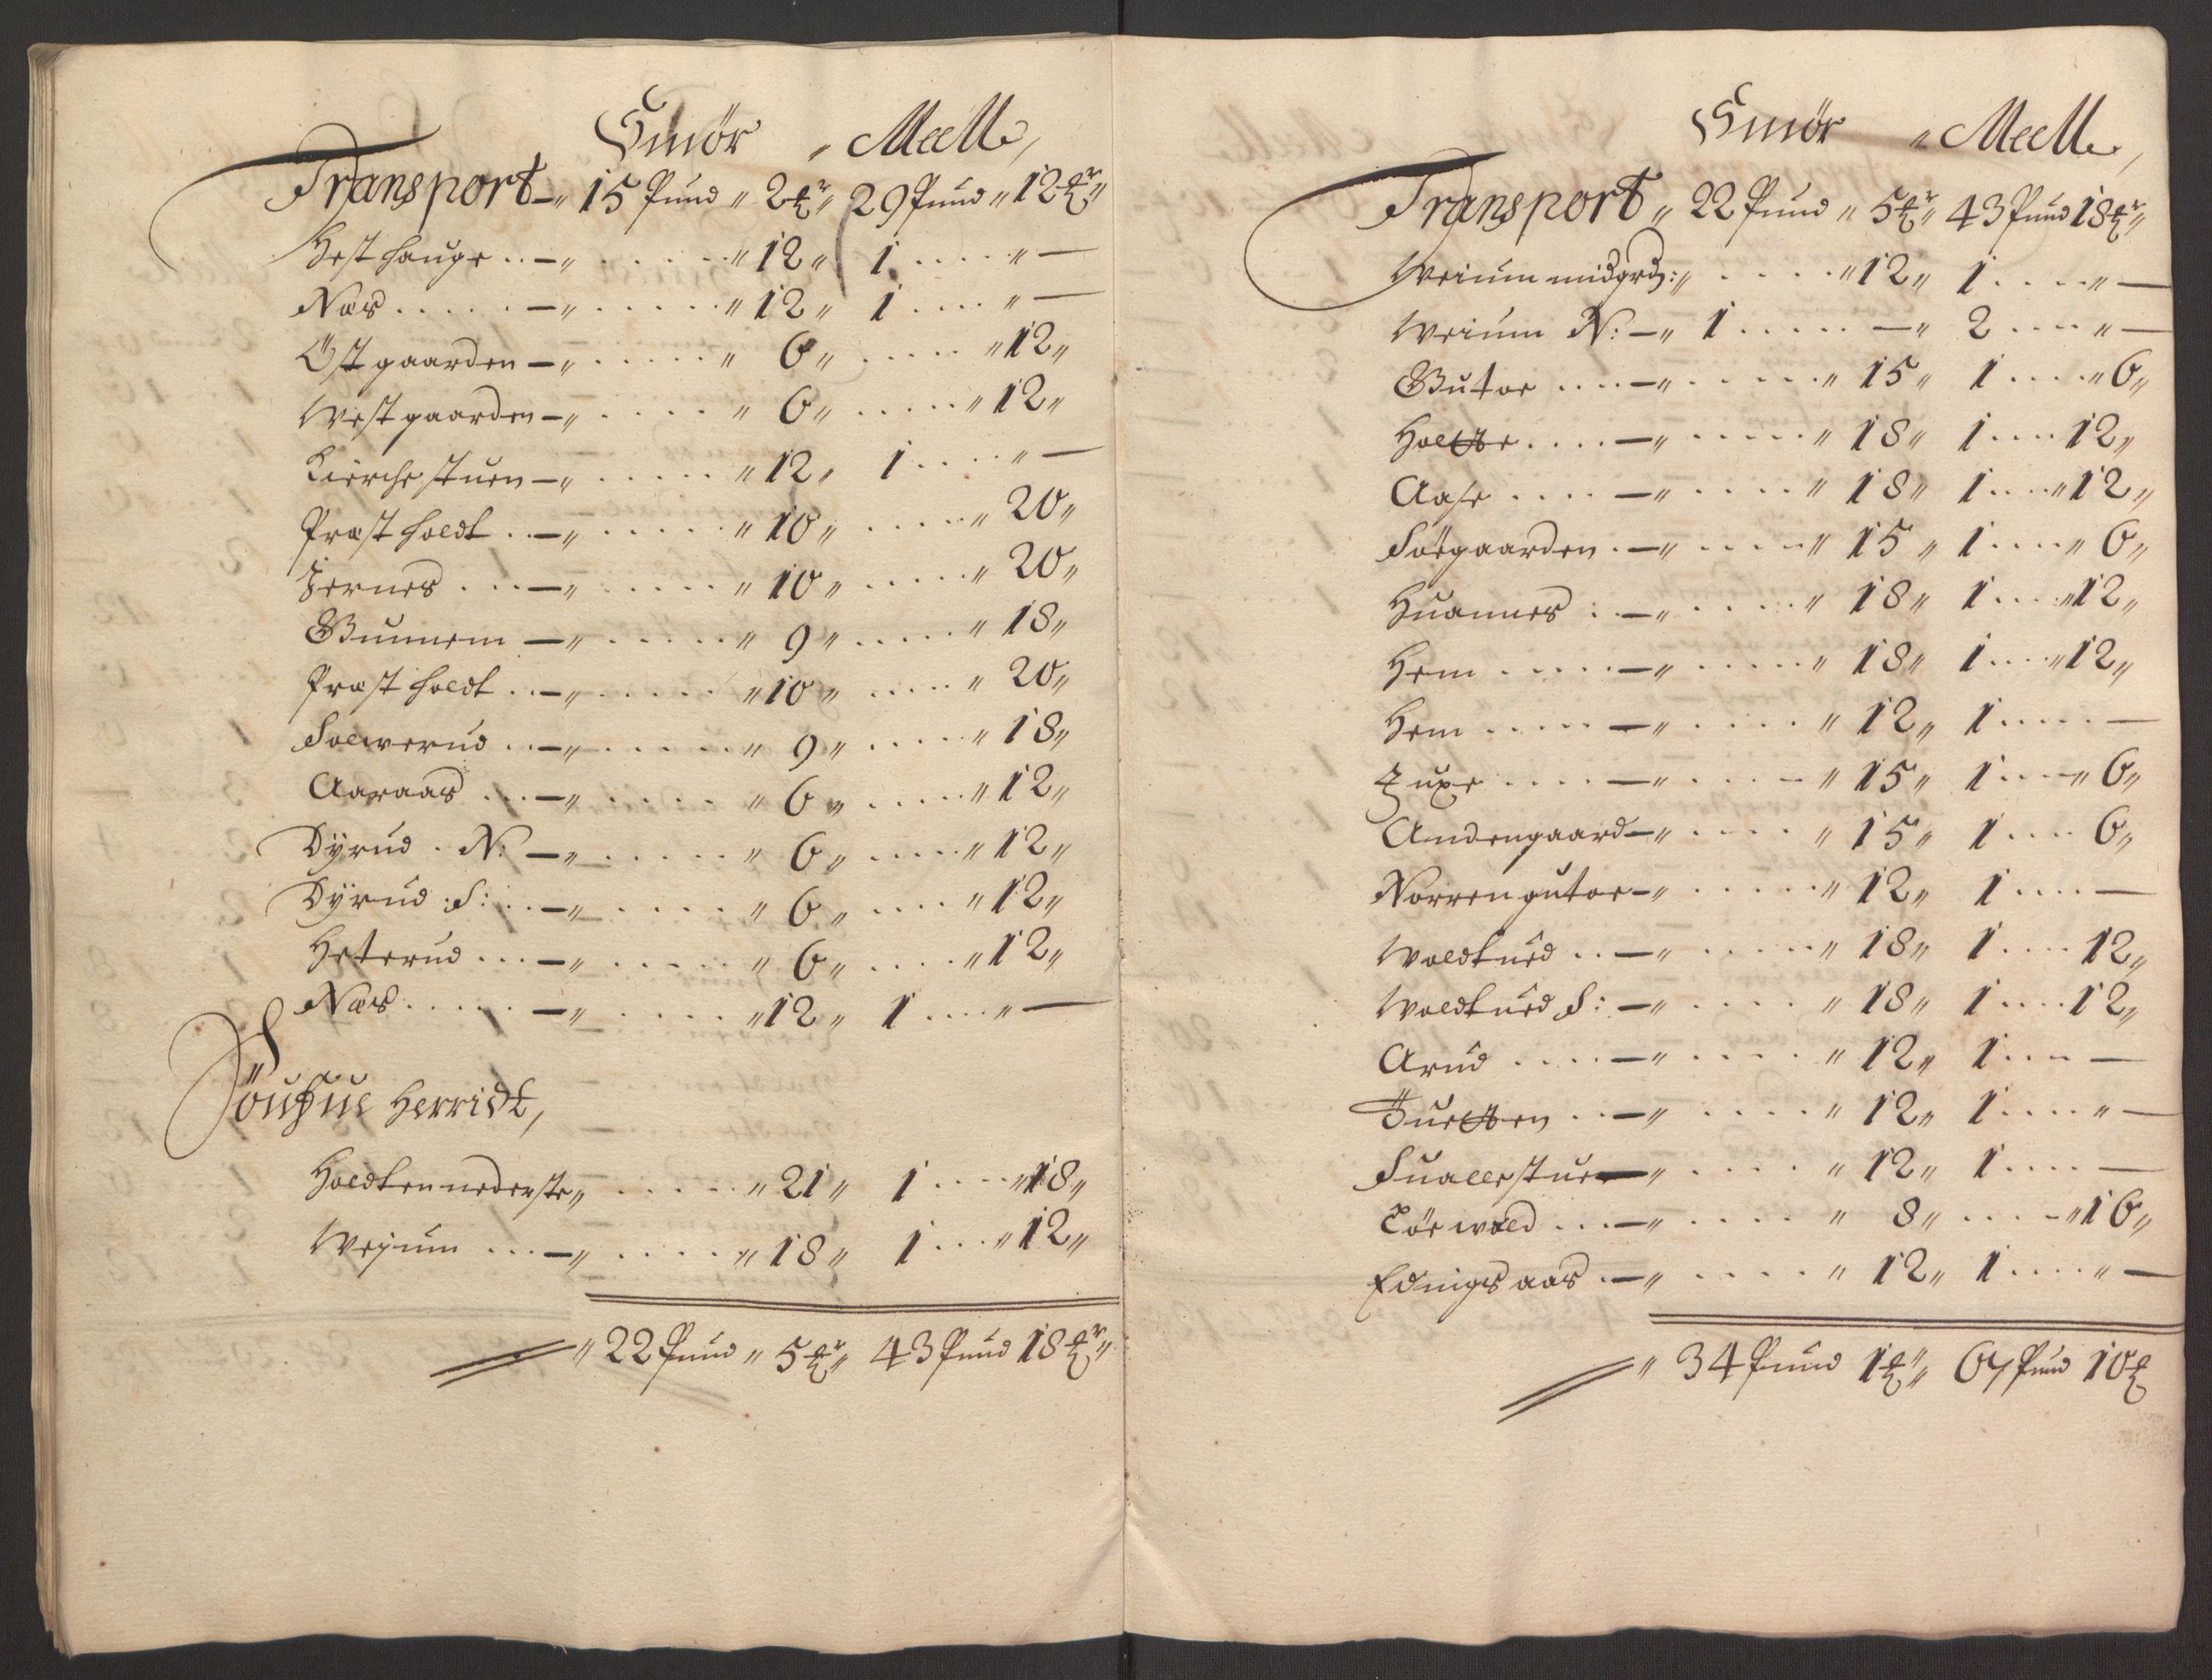 Smör „ Meell,
Transport „ 15 Pund „ 2 ℔r „ 29 Pund „ 12 ℔r „
Hesthauge .. — „ ..... „ 12 „ 1 .... „ —
Næs ..... — „ ..... „ 12 „ 1 .... „ —
Östgaarden — „ ..... „ 6 „ ..... „ 12 „
Westgaarden — „ .... „ 6 „ ..... „ 12 „
Kirchestuen — „ ..... „ 12 „ 1 .... „ —
Præstholdt .. — „ ..... „ 10 „ ..... „ 20 „
Jernes ... — „ ..... „ 10 „ ..... „ 20 „
Gunnem — „ ..... „ 9 „ ..... „ 18 „
Præstholdt .. — „ ..... „ 10 „ .... „ 20 „
Solwerud .. — „ ..... „ 9 „ ..... „ 18 „
Aaraas ... — „ .... „ 6 „ ..... „ 12 „
Dÿrud . N: — „ ..... „ 6 „ ..... „ 12 „
Dÿrud . S: .. — „ .... „ 6 „ .... „ 12 „
Heterud ... — „ ..... „ 6 „ .... „ 12 „
Næs ..... — „ .... „ 12 „ 1 .... „ —
Herridt,
Holdten nederste „ ..... „ 21 „ 1 .... „ 18 „
Wejum ... — „ ..... „ 18 „ 1 ... „ 12 „
„ 22 Pund „ 5 ℔r „ 43 Pund 18 ℔r „
Smör „ Meell,
Transport „ 22 Pund „ 5 ℔r „ 43 Pund 18 ℔r „
Weium midgrd: „ .... „ 12 „ 1 .... „ —
Weium N: — „ 1 ..... — „ 2 .... „ —
Gutor .... — „ ..... „ 15 „ 1 .... „ 6 „
Holtte .... — „ ..... „ 18 „ 1 .... 12 „
Aase .... — „ .... „ 18 „ 1 .... „ 12 „
Sörgaarden . — „ .... „ 15 „ 1 .... „ 6 „
Huannes . — „ .... „ 18 „ 1 .... „ 12 „
Hem ..... — „ ..... „ 18 „ 1 .... „ 12 „
Hem ..... — „ .... „ 12 „ 1 ..... —
Juxe .... — „ .... „ 15 „ 1 .... „ 6 „
Amdengaard — „ .... „ 15 „ 1 .... 6 „
Norrengutor — „ ..... „ 12 „ 1 .... —
Woldtued .. — „ ..... „ 18 „ 1 .... 12 „
Woldtued S: — „ .... „ 18 „ 1 .... 12 „
Arud .... — „ .... „ 12 „ 1 .... —
Tuetten .. — „ .... „ 12 „ 1 .... „ —
Sualestue — „ .... „ 12 „ 1 .... —
Törwold ... — „ .... „ 8 „ .... „ 16 „
Konigsaas . — „ .... „ 12 „ 1 .... „ —
„ 34 Pund 1 ℔r „ 67 Pund 10 ℔